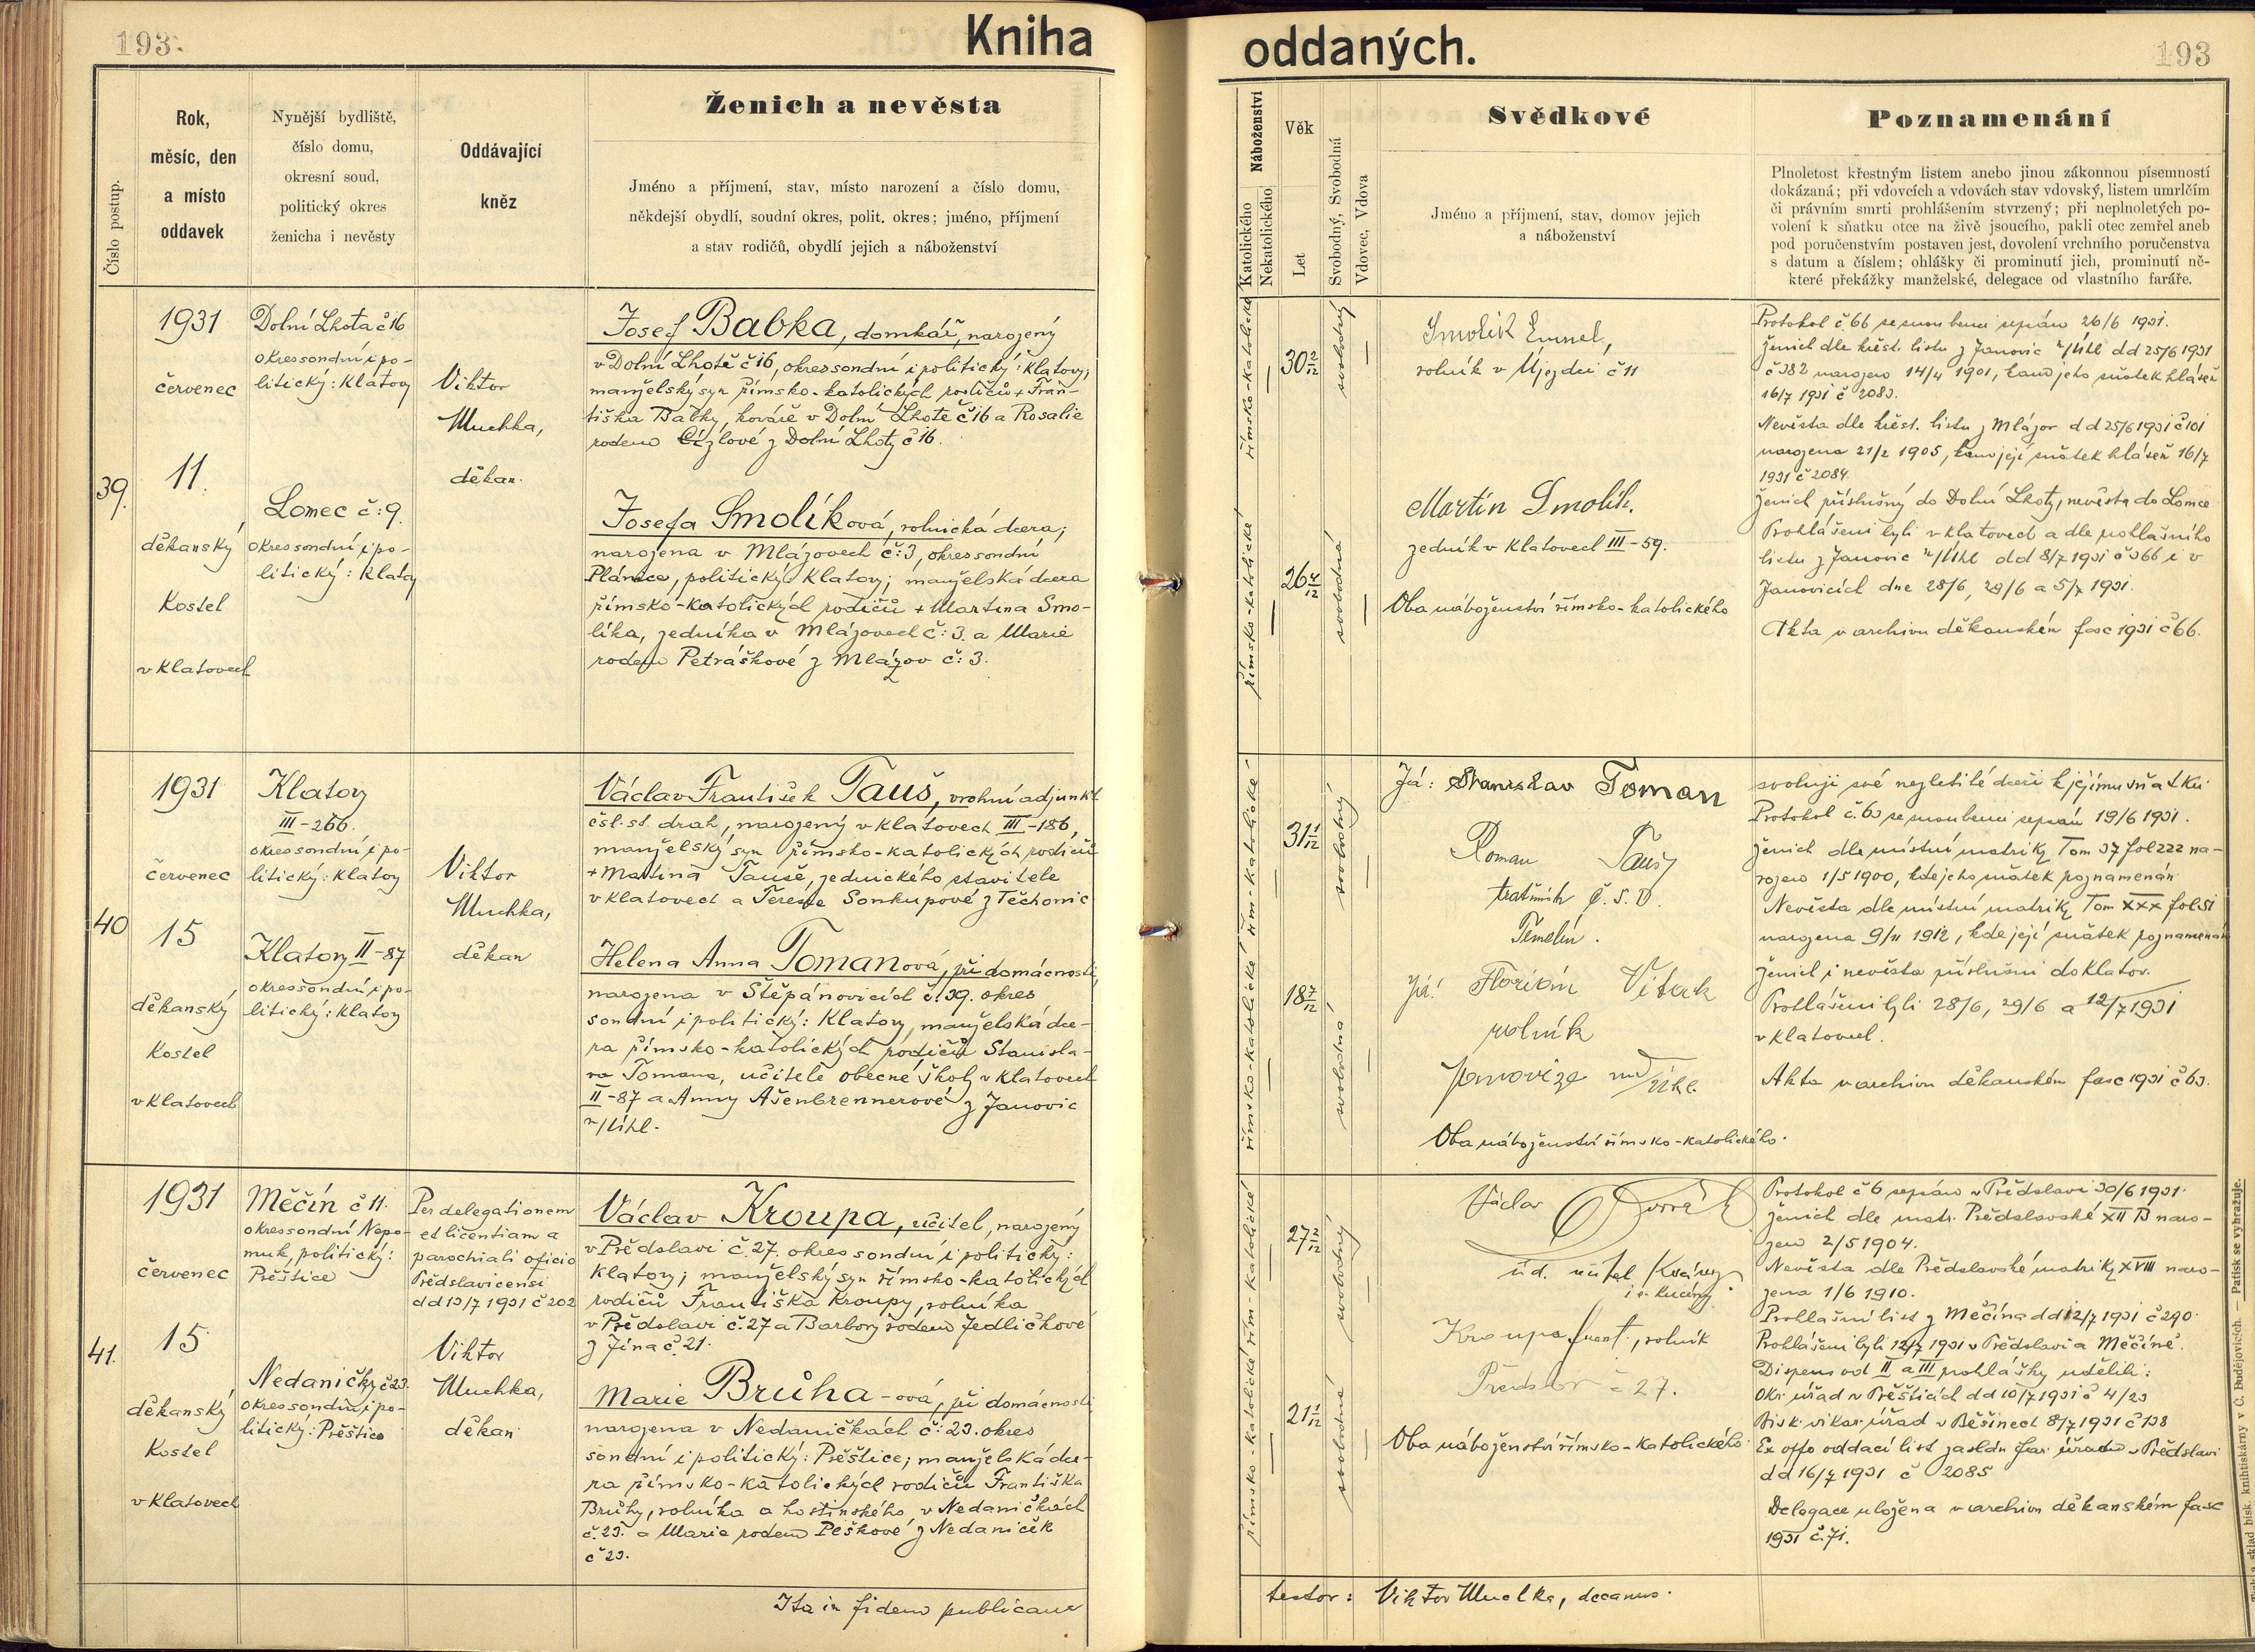 193
Kniha
Číslo postup.
Rok,
měsíc, den
a místo
oddavek
Nynější bydliště,
číslo domu,
okresní soud,
politický okres
ženicha i nevěsty
Oddávající
kněz
Ženich a nevěsta
Jméno a příjmení, stav, místo narození a číslo domu,
někdejší obydlí, soudní okres, polit. okres; jméno, příjmení
a stav rodičů, obydlí jejich a náboženství
39.
1931
červenec
11.
děkanský
kostel
v Klatovech
Dolní Lhota č 16
okres soudní i po-
litický: Klatovy
Lomec č: 9.
okres soudní i po-
litický: Klatovy
Viktor
Muchka,
děkan.
Josef Babka, domkář, narozený
v Dolní Lhotě č 16, okres soudní i politický: Klatovy;
manželský syn římsko-katolických rodičů + Fran-
tiška Babky, kováře v Dolní Lhotě č 16 a Rosalie
rodem Cízlové z Dolní Lhoty č 16.
Josefa Smolíková, rolnická dcera;
narozena v Mlázovech č: 3, okres soudní
Plánice, politický: Klatovy; manželská dcera
římsko-katolických rodičů + Martina Smo-
líka, zedníka v Mlázovech č: 3. a Marie
rodem Petráškové z Mlázov č: 3.
40
1931
červenec
15
děkanský
kostel
v Klatovech
Klatovy
III-266.
okres soudní i po-
litický: Klatovy
Klatovy II-87
okres soudní i po-
litický: Klatovy
Viktor
Muchka,
děkan
Václav František Tauš, vrchní adjunkt
čsl. st. drah, narozený v Klatovech III-186,
manželský syn římsko-katolických rodičů
+ Martina Tauše, zednického stavitele
v Klatovech a Terezie Soukupové z Těchonic
Helena Anna Tomanová, při domácnosti,
narozena v Štěpánovicích č. 39. okres
soudní i politický: Klatovy, manželská dce-
ra římsko-katolických rodičů Stanisla-
va Tomana, učitele obecné školy v Klatovech
II-87 a Anny Ašenbrennerové z Janovic
n/Úhl.
41.
1931
červenec
15
děkanský
kostel
v Klatovech
Měčín č 11.
okres soudní Nepo-
muk, politický:
Přeštice
Nedaničky č 23.
okres soudní i po-
litický: Přeštice
Per delegationem
et licentiam a
parochiali oficio
Předslavicensi
dd 13/7 1931 č 202
Viktor
Muchka,
děkan
Václav Kroupa, učitel, narozený
v Předslavi č. 27. okres soudní i politický:
Klatovy; manželský syn římsko-katolických
rodičů Františka Kroupy, rolníka
v Předslavi č. 27 a Barbory rodem Jedličkové
z Jína č. 21.
Marie Brůha-ová, při domácnosti
narozena v Nedaničkách č: 23. okres
soudní i politický: Přeštice; manželská dce-
ra římsko-katolických rodičů Františka
Brůhy, rolníka a hostinského, v Nedaničkách
č. 23. a Marie rodem Peškové z Nedaniček
č 23.
Ita in fidem publicam
oddaných.
193
Náboženství
Katolického
Nekatolického
Věk
Let
Svobodný, Svobodná
Vdovec, Vdova
Svědkové
Jméno a příjmení, stav, domov jejich
a náboženství
Poznamenání
Plnoletost křestným listem anebo jinou zákonnou písemností
dokázaná; při vdovcích a vdovách stav vdovský, listem umrlčím
či právním smrti prohlášením stvrzený; při neplnoletých po-
volení k sňatku otce na živě jsoucího, pakli otec zemřel aneb
pod poručenstvím postaven jest, dovolení vrchního poručenstva
s datum a číslem; ohlášky či prominutí jich, prominutí ně-
které překážky manželské, delegace od vlastního faráře.
římsko-katolické
30 2/12
svobodný
římsko-katolické
26 4/12
svobodná
Smolík
rolník v Újezdci č 11
Martin Smolík.
zedník v Klatovech III-59.
Oba náboženství římsko-katolického
Protokol č. 66 se snoubenci sepsán 26/6 1931.
Ženich dle křest. listu z Janovic n/Úhl dd 25/6 1931
č 382 narozen 14/4 1901, kam jeho sňatek hlášen
16/7 1931 č 2083.
Nevěsta dle křest. listu z Mlázov dd 25/6 1931 č 101
narozena 21/2 1905, kam její sňatek hlášen 16/7
1931 č 2084.
Ženich příslušný do Dolní Lhoty, nevěsta do Lomce
Prohlášeni byli v Klatovech a dle prohlašního
listu z Janovic n/Úhl dd 8/7 1931 č 366 i v
Janovicích dne 28/6, 29/6 a 5/7 1931.
Akta v archivu děkanském fasc 1931 č 66.
řím-katolické
31 1/12
svobodný
římsko-katolické
18 7/12
svobodná
Já: Stanislav Toman
Roman Tauš
traťmistr Č. S. D.
Temelín.
Já: Florián Viták
rolník
Janovice nad/Úhl.
Oba náboženství římsko-katolického.
svoluji své nezletilé dceři k jejímu sňatku.
Protokol č. 63 se snoubenci sepsán 19/6 1931.
Ženich dle místní matriky Tom 37 fol 222 na-
rozen 1/5 1900, kde jeho sňatek poznamenán
Nevěsta dle místní matriky Tom XXX fol 51
narozena 9/11 1912, kde její sňatek poznamenán
Ženich i nevěsta příslušni do Klatov.
Prohlášeni byli 28/6, 29/6 a 12/7 1931
v Klatovech.
Akta v archivu děkanském fasc 1931 č 63.
řím-katolické
27 2/12
svobodný
římsko-katolické
21 1/12
svobodná
Václav Dvořák
říd. učitel
Kroupa Frant., rolník
Předslav č 27.
Oba náboženství římsko-katolického.
Protokol č 6 sepsán v Předslavi 30/6 1931.
Ženich dle matr. Předslavské XII B naro-
zen 2/5 1904.
Nevěsta dle Předslavské matriky XVIII naro-
zena 1/6 1910.
Prohlašní list z Měčína dd 12/7 1931 č 290.
Prohlášeni byli 12/7 1931 v Předslavi a Měčíně.
Dispens od II a III prohlášky udělili:
Okr. úřad v Přešticích dd 10/7 1931 č 4/23
Bisk. vikar. úřad v Běšinech 8/7 1931 č 138
Ex offo oddací list zaslán far. úřadu v Předslavi
dd 16/7 1931 č 2085
Delegace uložena v archivu děkanském fasc
1931 č. 71.
testor: Viktor Muchka, decanus.
Tisk a sklad bisk. knihtiskárny v Č. Budějovicích. — Patisk se vyhražuje.